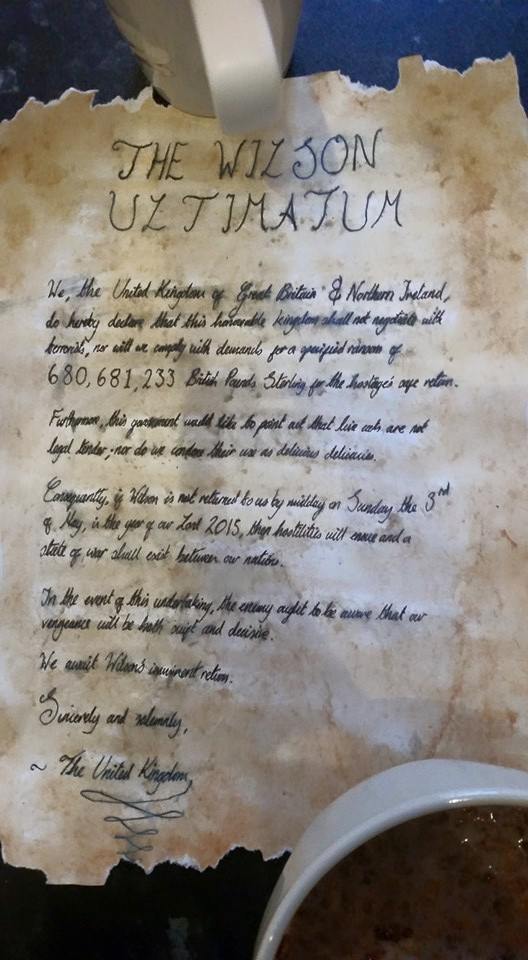 THE WILSON
ULTIMATUM
We, the United Kingdom of Great Britain & Northern Ireland,
do hereby declare that this honourable kingdom shall not negotiate with
terrorists, nor will we comply with demands for a specified ransom of
680,681,233 British Pounds Sterling for the hostage's safe return.
Furthermore, this government would like to point out that live eels are not
legal tender, nor do we condone their use as delicious delicacies.
Consequently, if Wilson is not returned to us by midday on Sunday the 3rd
of May, in the year of our Lord 2015, then hostilities will ensue and a
state of war shall exist between our nations.
In the event of this undertaking, the enemy ought to be aware that our
vengeance will be both swift and decisive.
We await Wilson's imminent return.
Sincerely and solemnly,
~ The United Kingdom